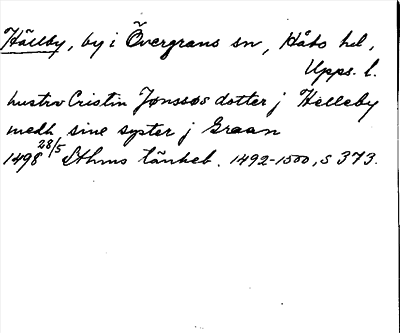 Hällby, by i Övergrans sn, Håbo hd,
Upps. l.
hustrv Cristin Jonssos dotter j Helleby
medh sine syster j Graan
1498 28/5 Sthms tänkeb. 1492-1500, s 373.